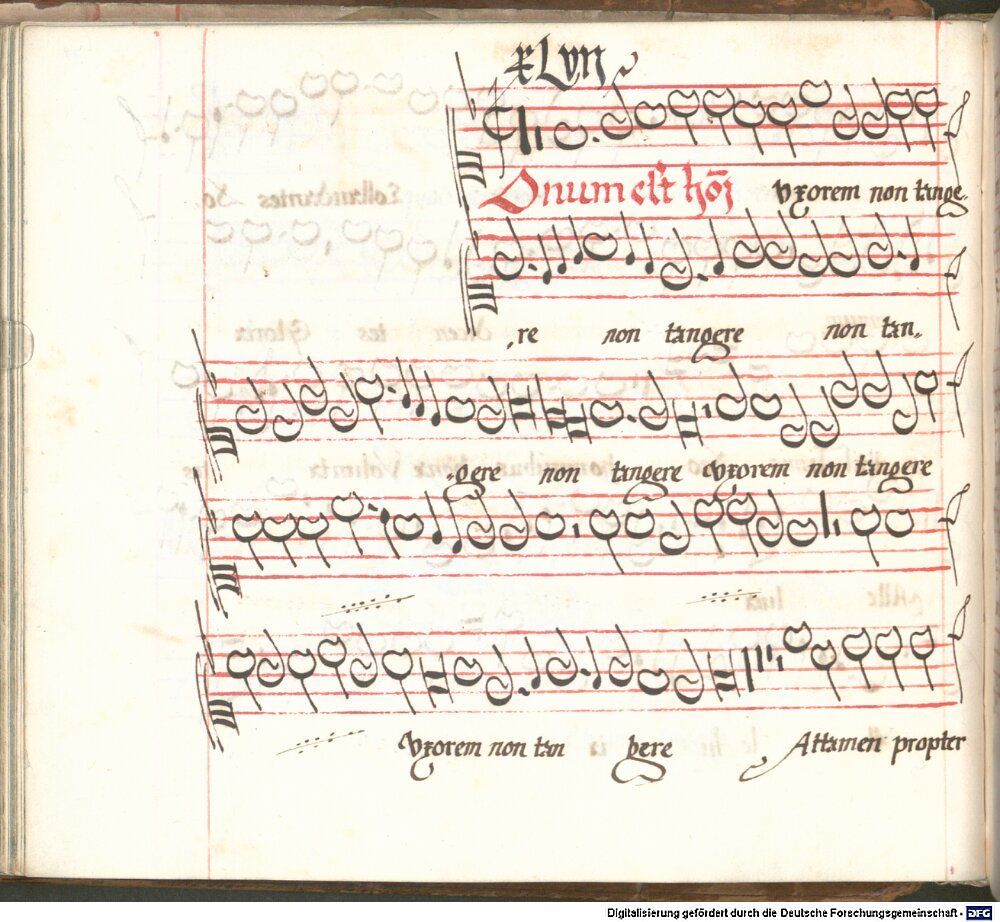 xLvij
Onum est hōi vxorem non tange.
re non tangere non tan.
gere non tangere vxorem non tangere
vxorem non tan gere Attamen propter
Digitalisierung gefördert durch die Deutsche Forschungsgemeinschaft - DFG